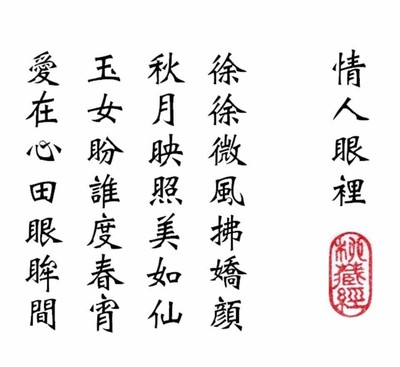 情人眼裡
秘藏經
徐徐微風拂嬌顔
秋月映照美如仙
玉女盼誰度春宵
愛在心田眼眸間